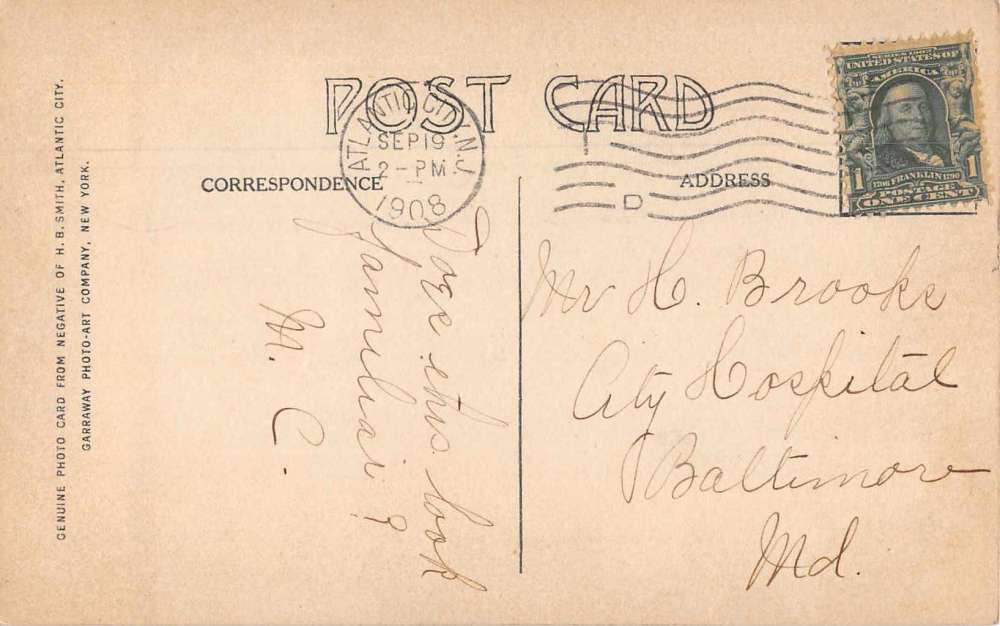 POST CARD
CORRESPONDENCE
ADDRESS
ATLANTIC CITY, N.J.
SEP 19
2 - PM
1908
D
SERIES 1902
UNITED STATES OF
AMERICA
1 1
1706 FRANKLIN 1790
POSTAGE
ONE CENT
Does this look
familiar?
M. C.
Mr H. Brooks
City Hospital
Baltimore
Md.
GENUINE PHOTO CARD FROM NEGATIVE OF H. B. SMITH, ATLANTIC CITY.
GARRAWAY PHOTO-ART COMPANY, NEW YORK.